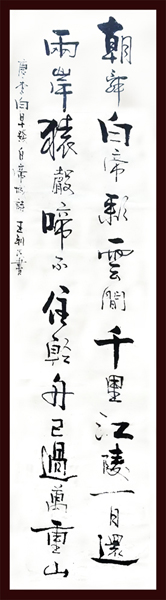 朝辭白帝彩雲間千里江陵一日還
兩岸猿聲啼不住輕舟已過萬重山
唐李白早發白帝城詩 書